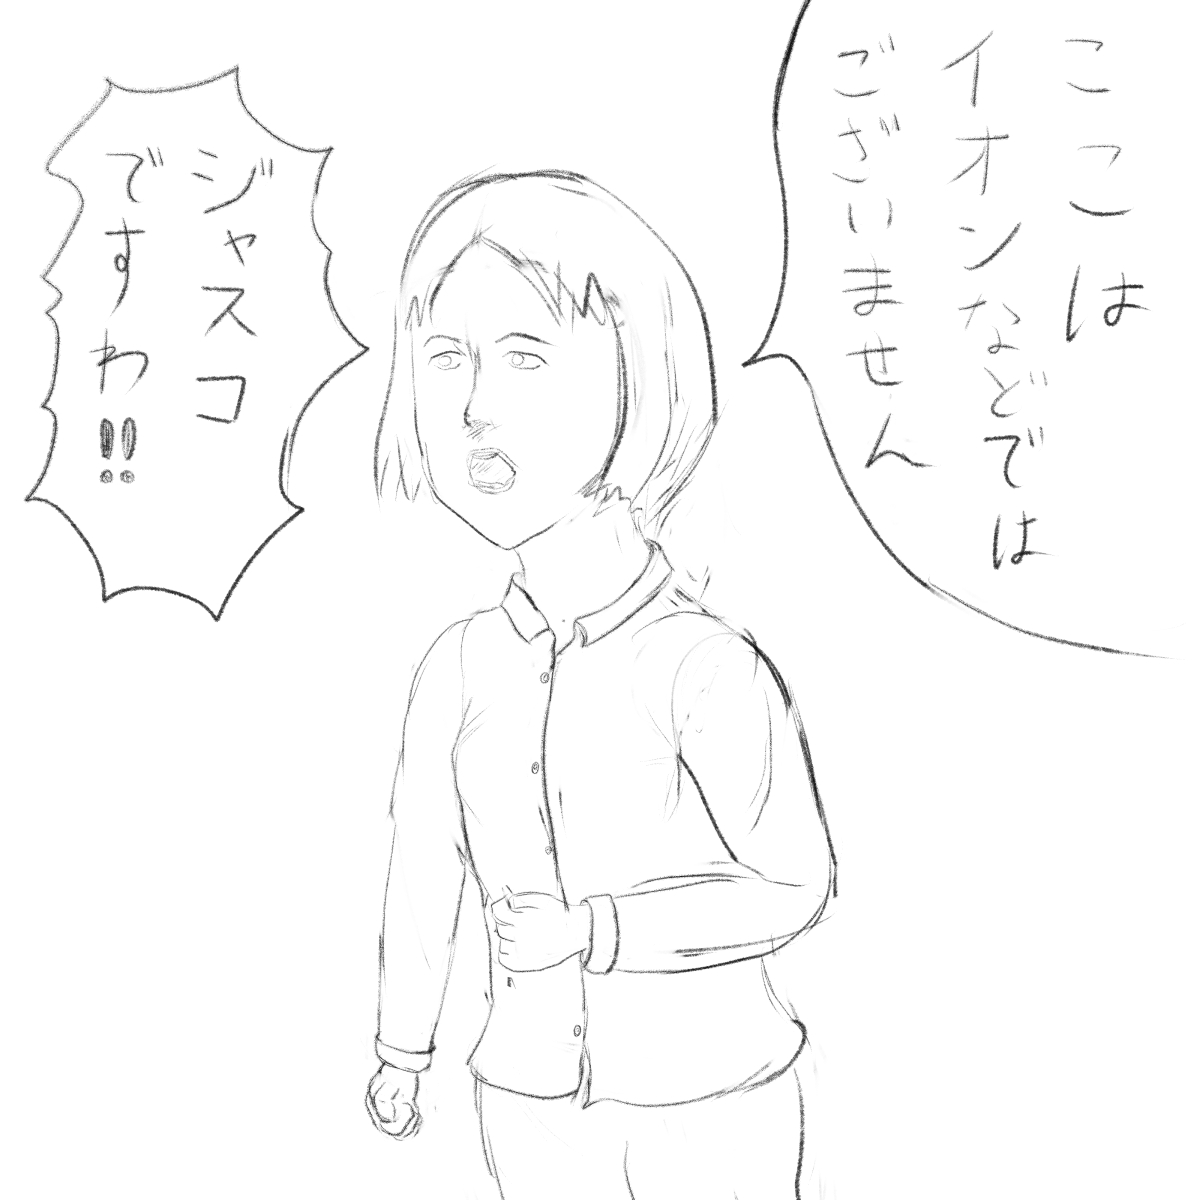 ここは
イオンなどでは
ございません
ジャスコ
ですわ!!